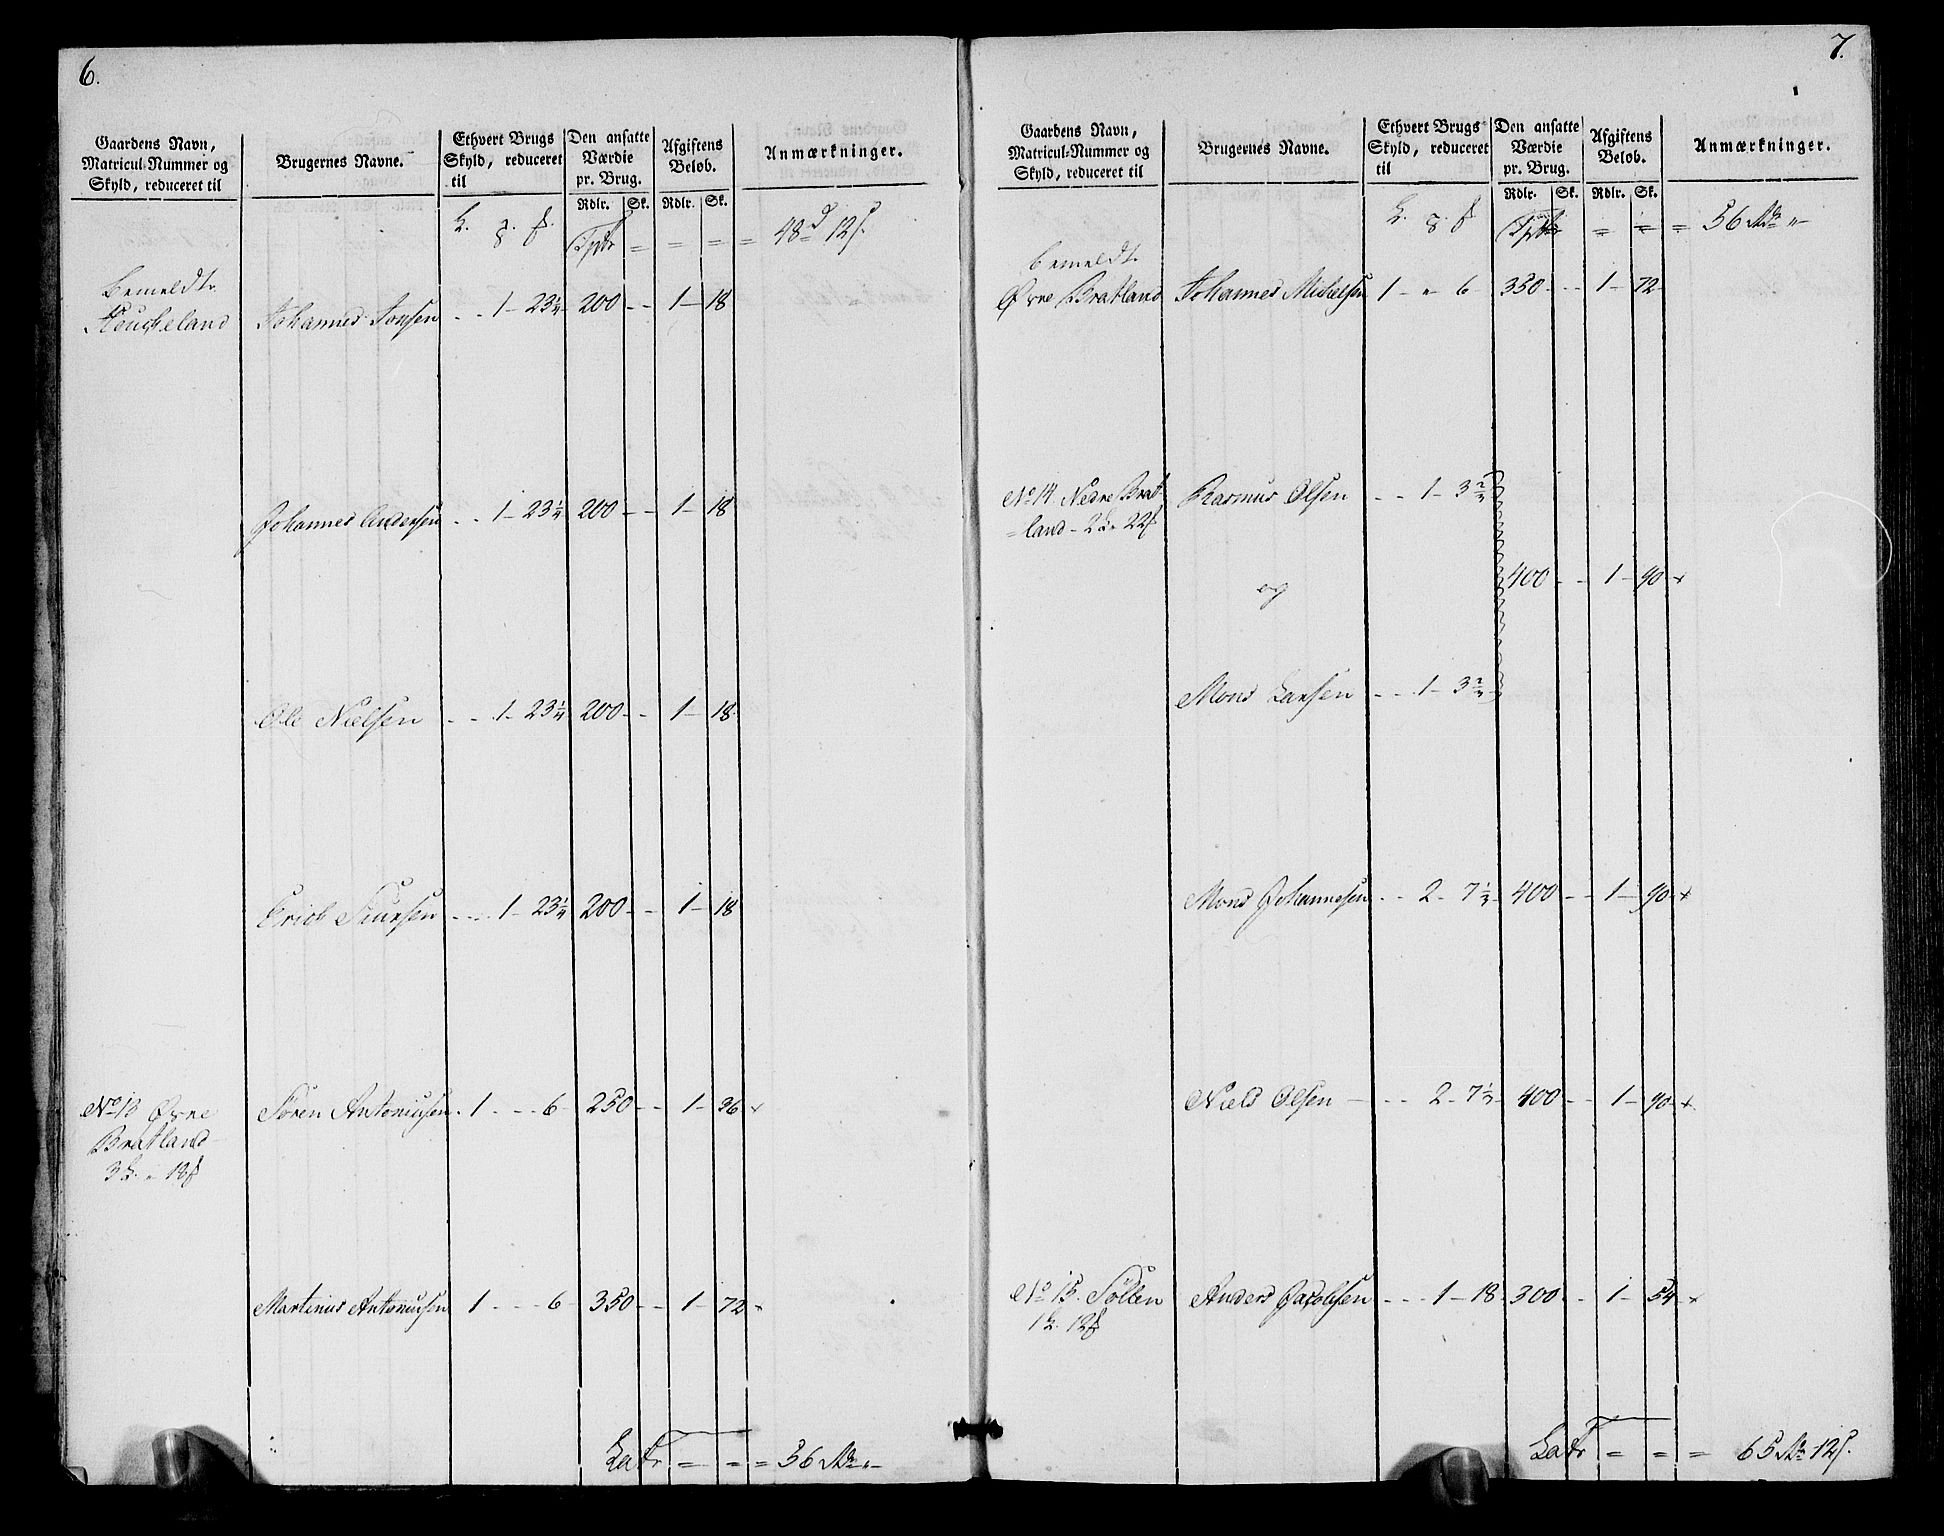 6.
Gaardens Navn, Matricul-Nummer og Skyld, reduceret til
Brugernes Navne.
Ethvert Brugs Skyld, reduceret til
Den ansatte Værdie pr. Brug.
Afgiftens Beløb.
Anmærkninger.
Rdlr. Sk. Rdlr. Sk.
Tptr = = = = 48 d 12 s.
bemeldte
Johannes Jonsen - - 1 - 23¼ 200 - - 1 - 18
Johannes Andersen - - 1 - 23¼ 200 - - 1 - 18
Ole Nielsen - - 1 - 23¼ 200 - - 1 - 18
Erich - - 1 - 23¼ 200 - - 1 - 18
No 13 Øvre Søren Antoniusen 1 - - 6 250 - - 1 - 36
Bratland
3 L. " 18
Martinus Antoniusen 1 - - 6 350 - - 1 - 72
Latr = = = 56
7.
Gaardens Navn, Matricul-Nummer og Skyld, reduceret til
Brugernes Navne.
Ethvert Brugs Skyld, reduceret til
Den ansatte Værdie pr. Brug.
Afgiftens Beløb.
Anmærkninger.
Rdlr. Sk. Rdlr. Sk.
Tptr = = = 56
bemeldte
Øvre Bratland Johannes Mickelsen 1 - " 6 - 350 - - 1 - 72
No 14 Nedre Brat- Rasmus Olsen - - 1 - 3
land - 2 L. 22
og 400 - - 1 - 90
Mons Larsen - - 1 - 3
Mons Johannesen - - 2 - 7 400 - - 1 - 90
Niels Olsen - - 2 - 7 400 - - 1 - 90
No 15 Anders Jacobsen - - - 1 - 18 300 - - 1 - 54
1 L. 12
Latr = = = 65 12 s.